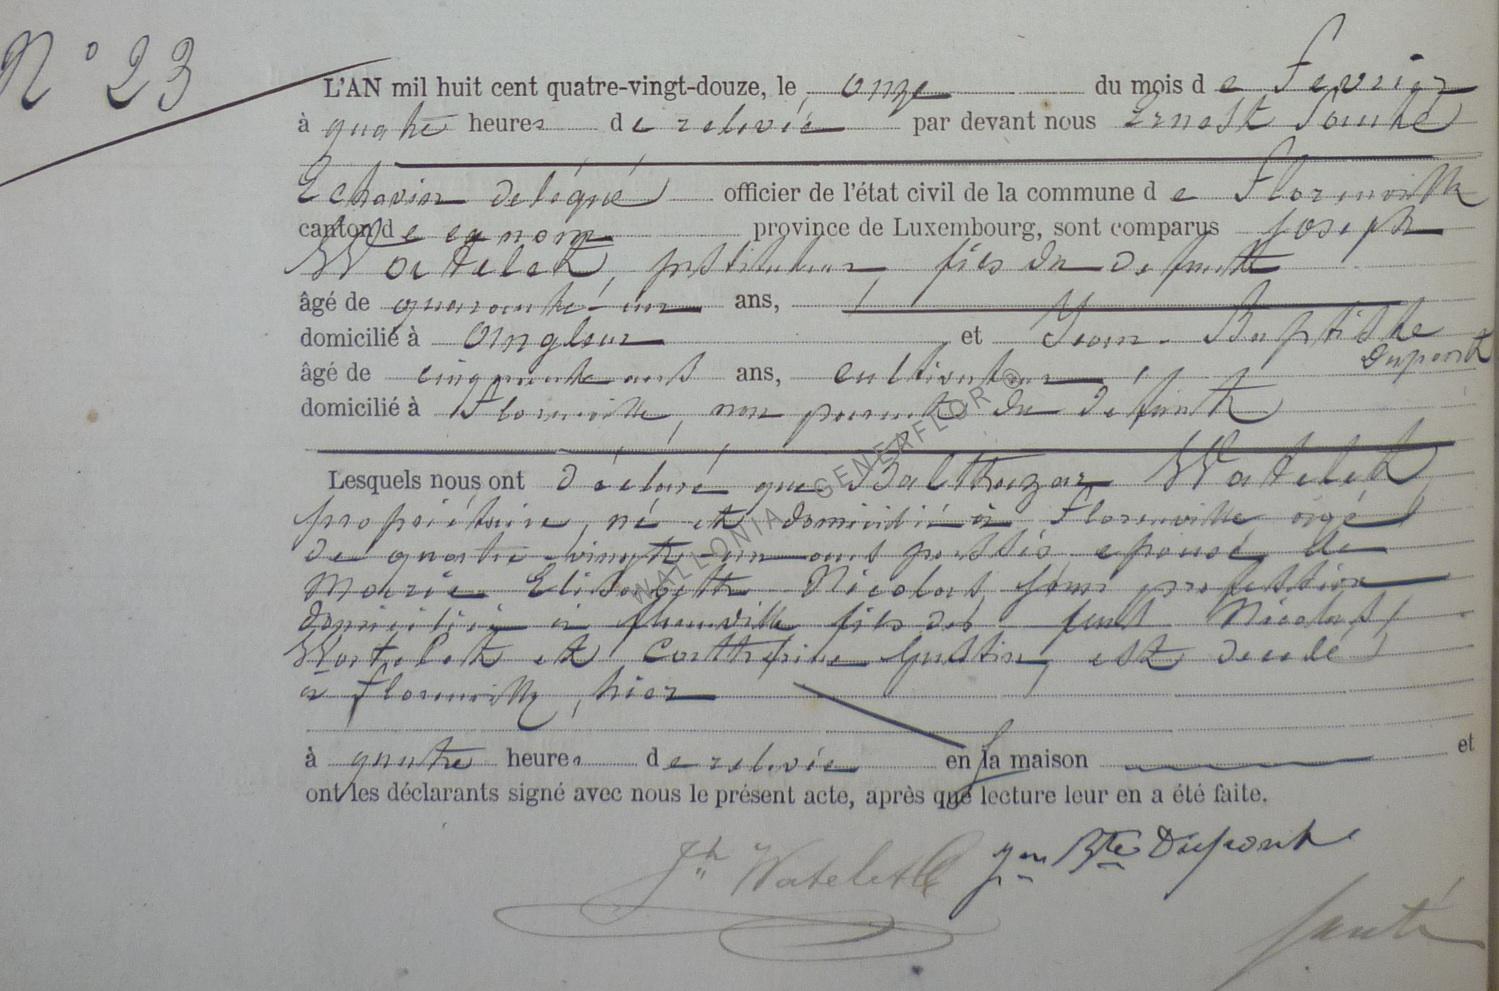 N° 23
L'AN mil huit cent quatre-vingt-douze, le onze du mois de fevrier
à quatre heures de relevée par devant nous Ernest Santé
Echevin delégué officier de l'état civil de la commune de Florenville
canton de ce nom province de Luxembourg, sont comparus Joseph
Watelet, instituteur, fils du defunt
âgé de quarante-un ans,
domicilié à Angleur et Jean-Baptiste
Dupont
âgé de cinquante ans, cultivateur,
domicilié à Florenville, non parent du défunt
Lesquels nous ont déclaré que Balthazar Watelet
propriétaire, né et domicilié à Florenville agé
de quatre-vingt-un ans passés, epoux de
Marie Elisabeth Nicolas, sans profession
domiciliée à Florenville fils des feus Nicolas
Watelet et Catherine Gustin, est decedé
à Florenville, hier
à quatre heures de relevée en sa maison et
ont les déclarants signé avec nous le présent acte, après que lecture leur en a été faite.
Jh Watelet Jean Bte Dupont
Santé
WALLONIA GENEAFLOR ©